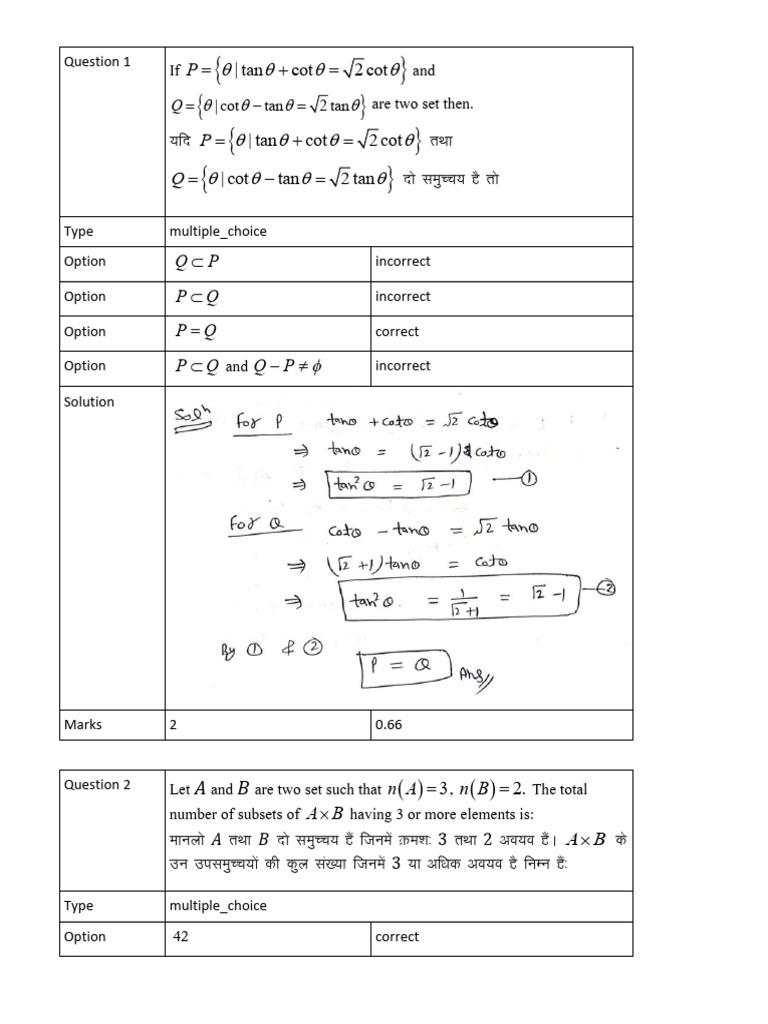 Question 1
If P = {θ | tan θ + cot θ = √2 cot θ} and
Q = {θ | cot θ − tan θ = √2 tan θ} are two set then.
यदि P = {θ | tan θ + cot θ = √2 cot θ} तथा
Q = {θ | cot θ − tan θ = √2 tan θ} दो समुच्चय है तो
Type multiple_choice
Option Q ⊂ P incorrect
Option P ⊂ Q incorrect
Option P = Q correct
Option P ⊂ Q and Q − P ≠ ϕ incorrect
Solution
Solⁿ For P tanθ + cotθ = √2 cotθ
⇒ tanθ = (√2 −1) cotθ
⇒ tan²θ = √2 −1 —①
For Q cotθ − tanθ = √2 tanθ
⇒ (√2 +1) tanθ = cotθ
⇒ tan²θ. = 1/(√2+1) = √2 −1 —②
By ① & ② P = Q Ans//
Marks 2 0.66
Question 2
Let A and B are two set such that n(A) = 3, n(B) = 2. The total
number of subsets of A × B having 3 or more elements is:
मानलो A तथा B दो समुच्चय हैं जिनमें क्रमशः 3 तथा 2 अवयव हैं। A × B के
उन उपसमुच्चयों की कुल संख्या जिनमें 3 या अधिक अवयव है निम्न हैं:
Type multiple_choice
Option 42 correct